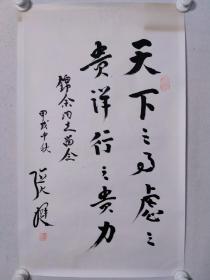 天下之事慮之
贵详行之贵力
锦余同志留念
甲戌中秋